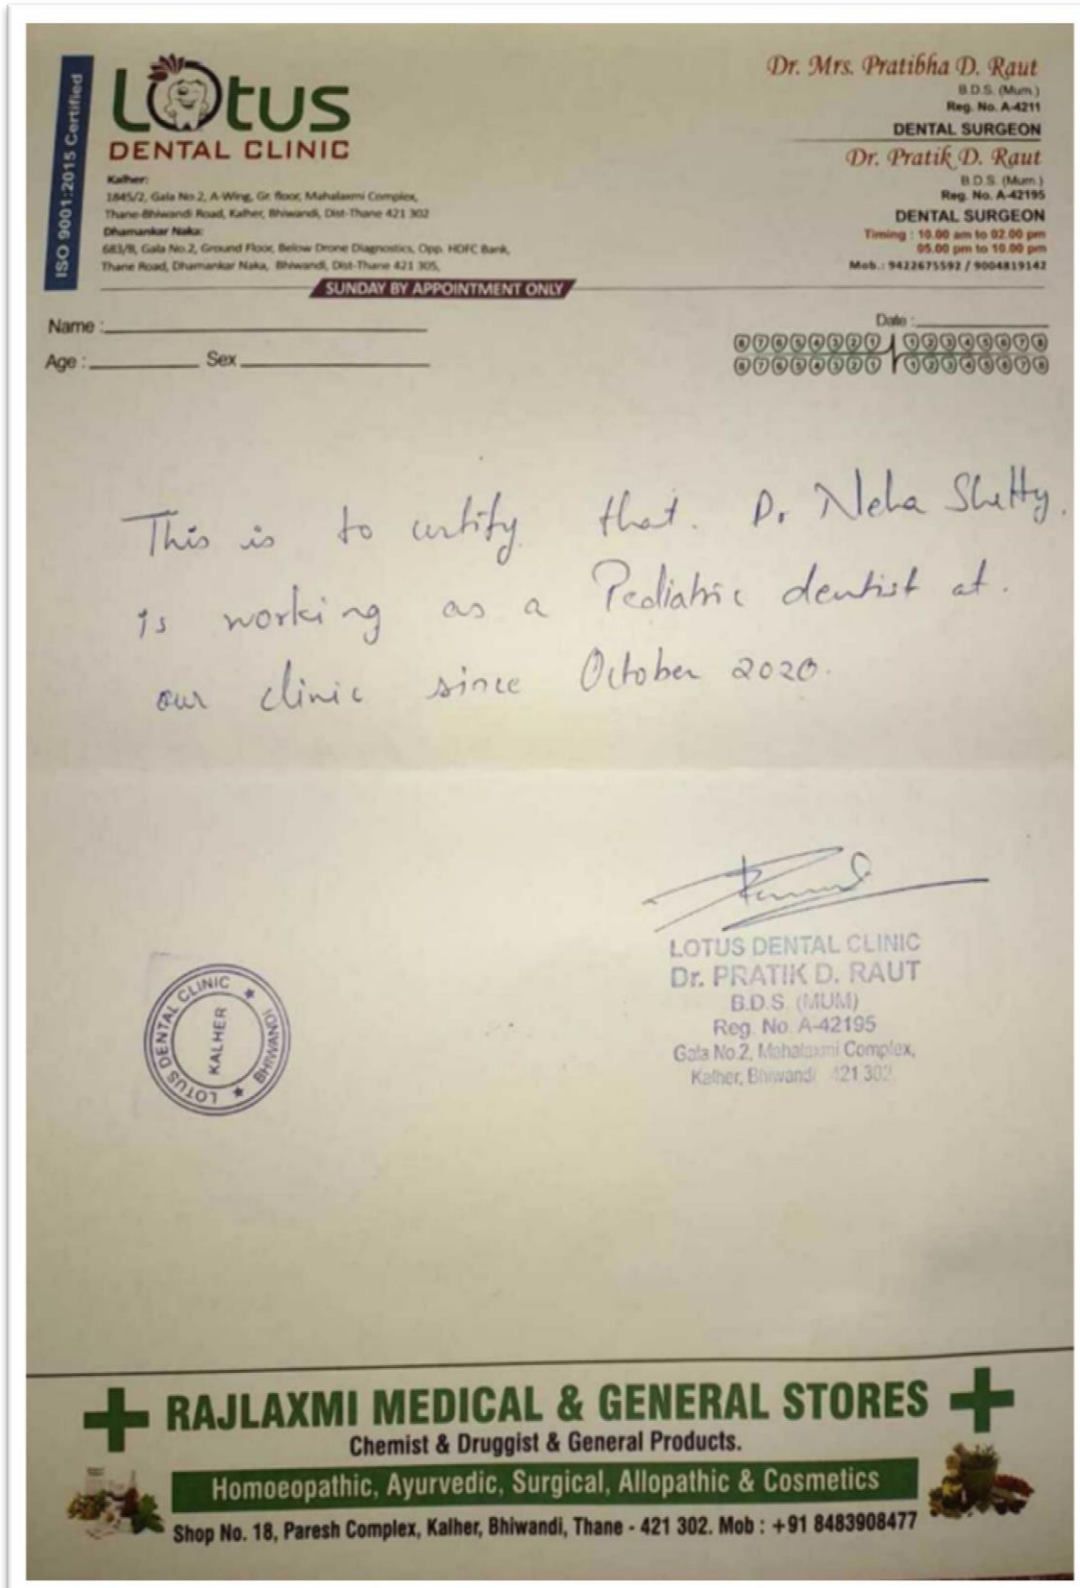 ISO 9001:2015 Certified
Lotus
DENTAL CLINIC
Kalher:
1845/2, Gala No.2, A-Wing, Gr. floor, Mahalaxmi Complex,
Thane-Bhiwandi Road, Kalher, Bhiwandi, Dist-Thane 421 302
Dhamankar Naka:
683/B, Gala No.2, Ground Floor, Below Drone Diagnostics, Opp. HDFC Bank,
Thane Road, Dhamankar Naka, Bhiwandi, Dist-Thane 421 305,
SUNDAY BY APPOINTMENT ONLY
Dr. Mrs. Pratibha D. Raut
B.D.S. (Mum.)
Reg. No. A-4211
DENTAL SURGEON
Dr. Pratik D. Raut
B.D.S. (Mum.)
Reg. No. A-42195
DENTAL SURGEON
Timing : 10.00 am to 02.00 pm
05.00 pm to 10.00 pm
Mob.: 9422675592 / 9004819142
Name :
Date :
Age : Sex
8 7 6 5 4 3 2 1 1 2 3 4 5 6 7 8
8 7 6 5 4 3 2 1 1 2 3 4 5 6 7 8
This is to certify that. Dr Neha Shetty.
is working as a Pediatric dentist at.
our clinic since October 2020.
LOTUS DENTAL CLINIC
Dr. PRATIK D. RAUT
B.D.S. (MUM)
Reg. No. A-42195
Gala No.2, Mahalaxmi Complex,
Kalher, Bhiwandi 421 302
LOTUS DENTAL CLINIC ★ BHIWANDI ★
KALHER
RAJLAXMI MEDICAL & GENERAL STORES
Chemist & Druggist & General Products.
Homoeopathic, Ayurvedic, Surgical, Allopathic & Cosmetics
Shop No. 18, Paresh Complex, Kalher, Bhiwandi, Thane - 421 302. Mob : +91 8483908477